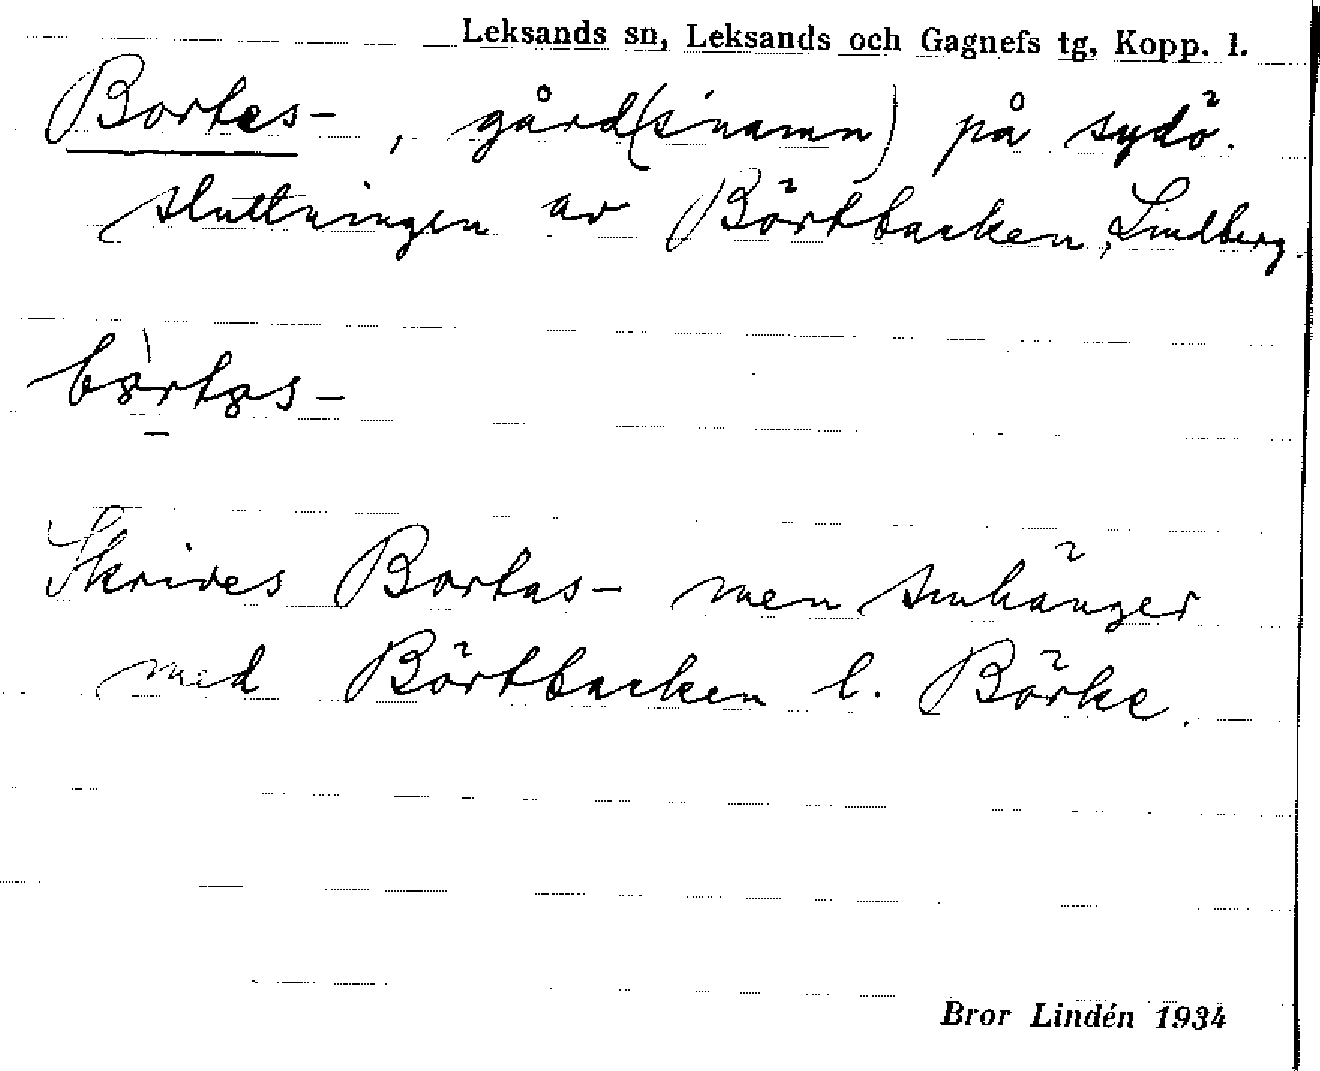 Leksands sn, Leksands och Gagnefs tg, Kopp. l.
Bortas-, gård(snamn) på sydö.
sluttningen av Börtbacken, Lindberg.
Skrives Bortas- men smhänger
med Börtbacken l. Börke.
Bror Lindén 1934